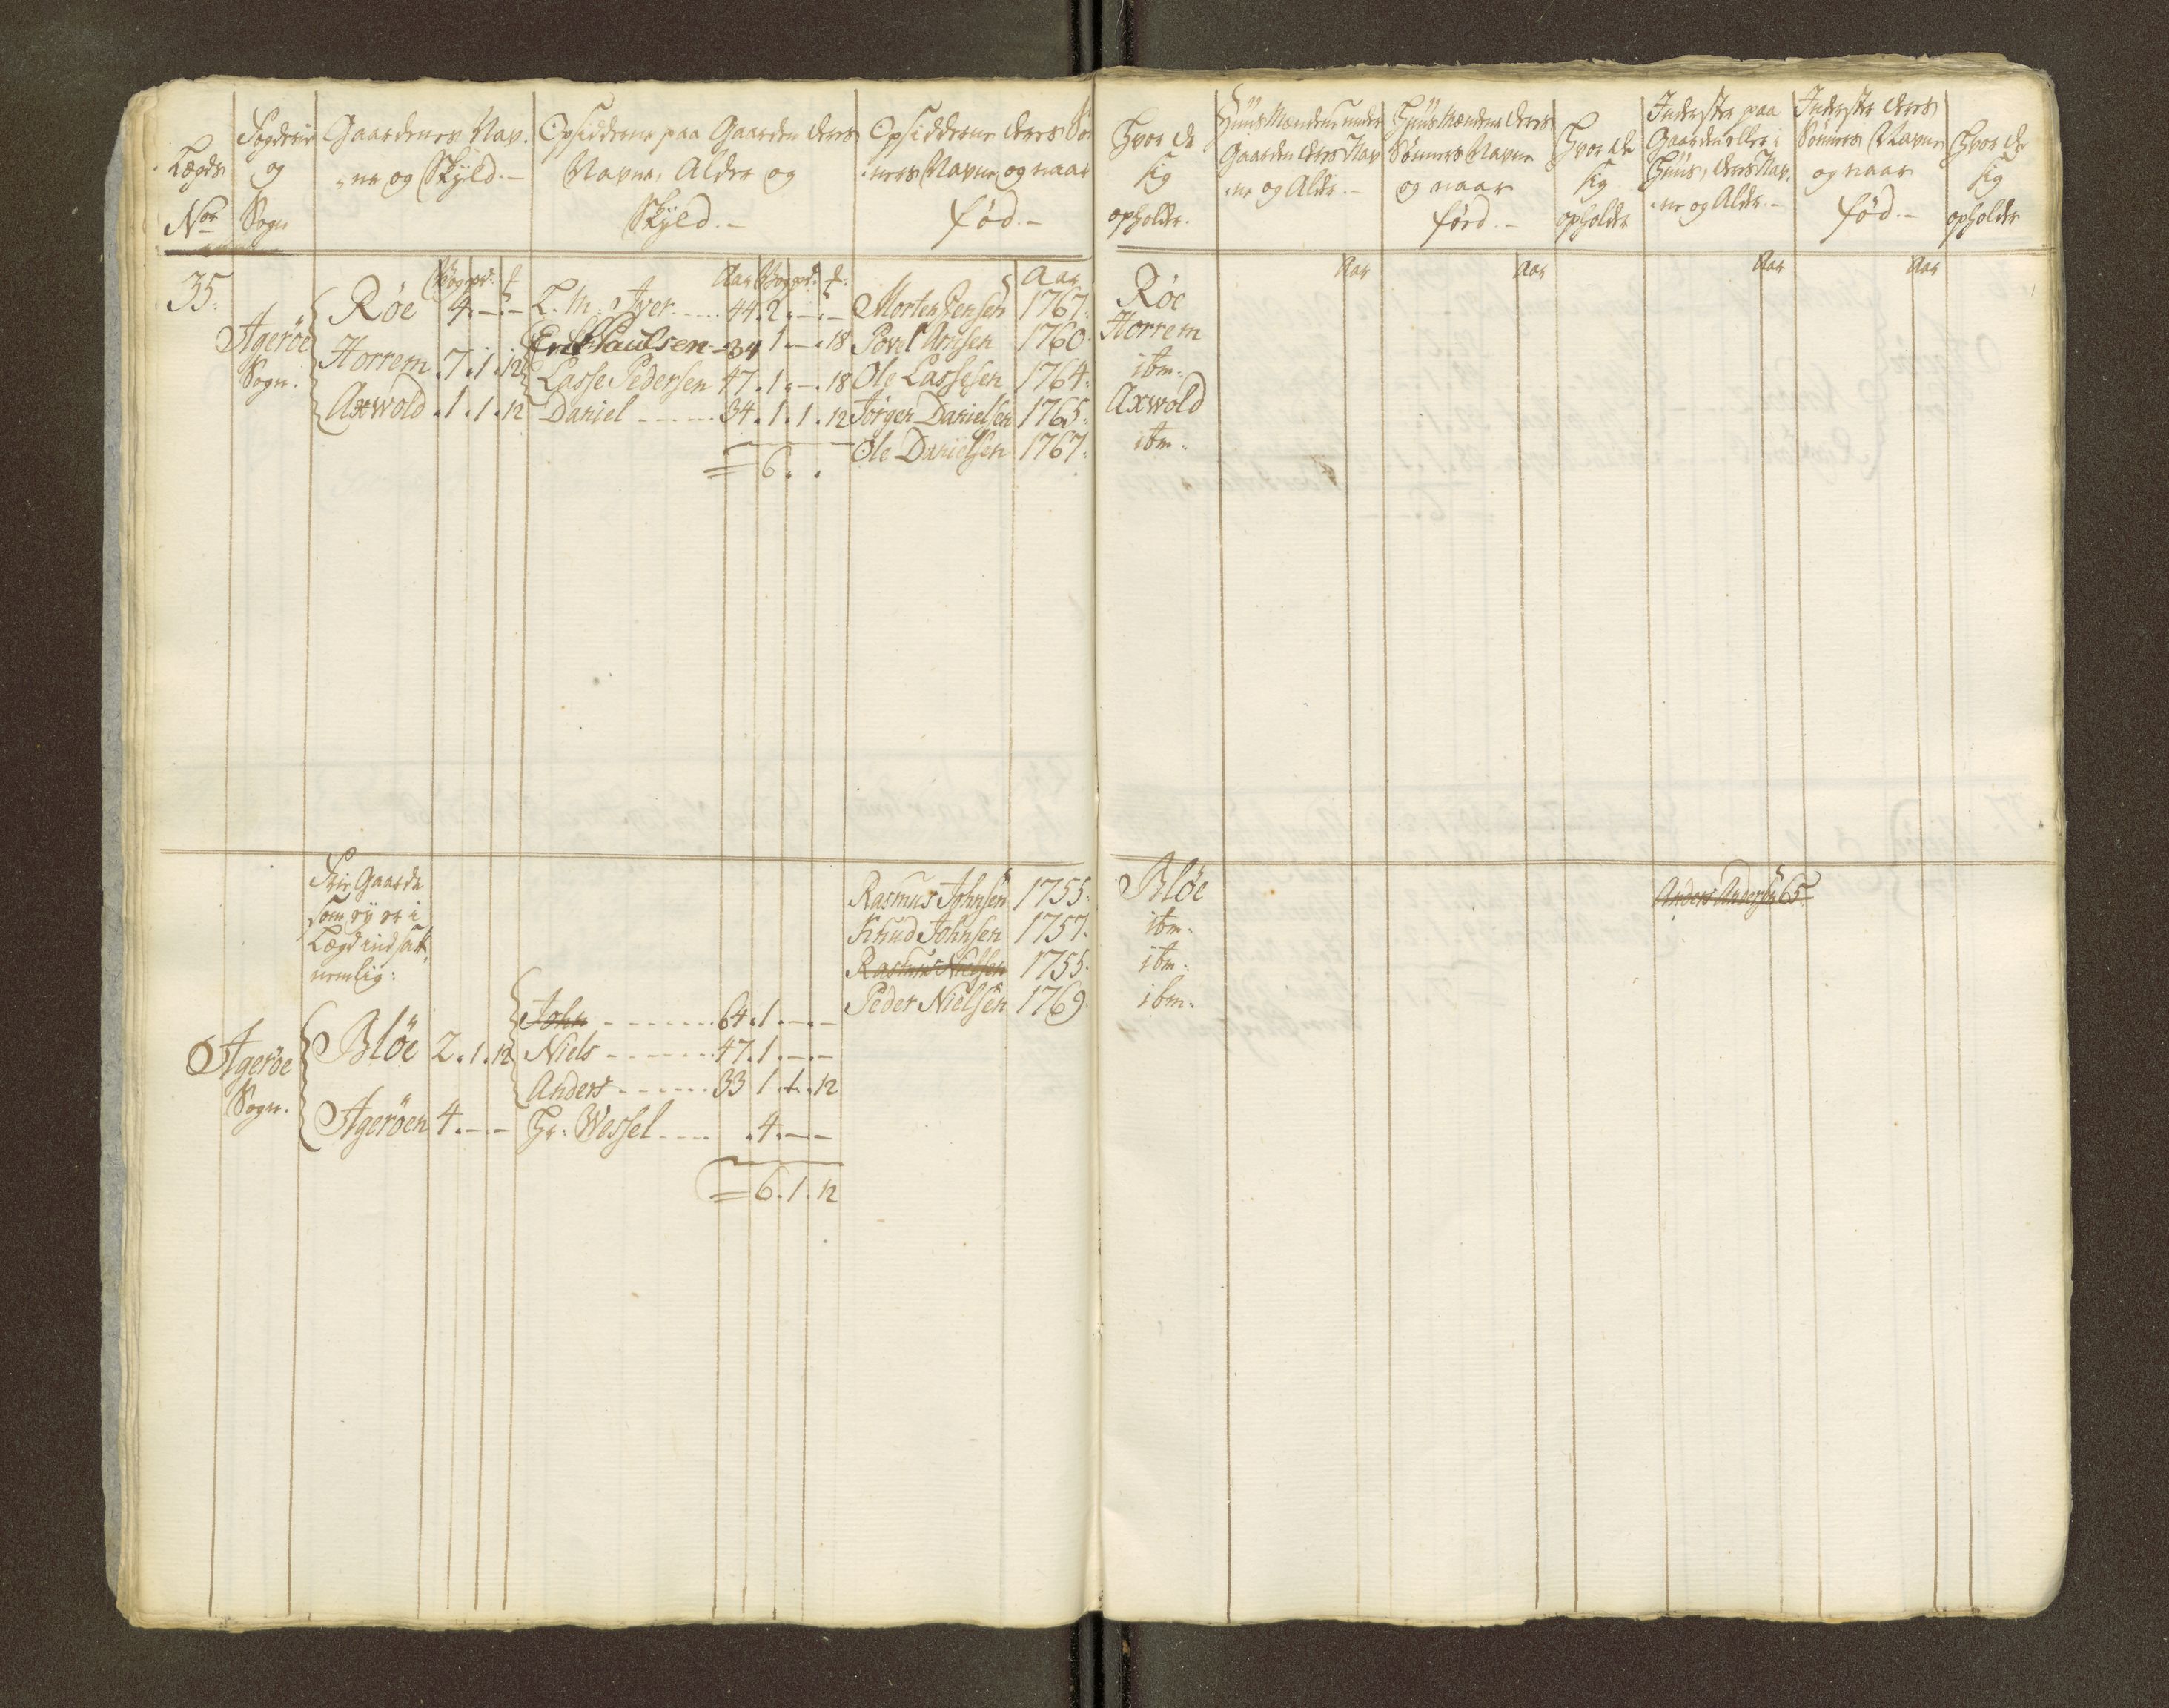 Lægds
No
Fogderie
og
Sogn
Gaardenes Nav-
ne og Skyld.-
Opsidderne paa Gaarden deres
Navne, Alder og
Skyld.-
Opsidderne deres Søn
ners Navne og naar
fød.-
Hvor de
sig
opholder.
Huus Mændene under
Gaarden deres Nav
ne og Alder.-
Huus Mændene deres
Sønners Navne
og naar
fød.-
Hvor de
sig
opholder
Inderste paa
Gaarden eller i
Huus, deres Nav-
ne og Alder.-
Inderste deres
Sønners Navne
og naar
fød.-
Hvor de
sig
opholder
Aar Aar Aar Aar Aar Aar
35.
Agerøe
Sogn.
Røe 4.-.- L. M. Iver 44. 2.-.- Morten Jensen 1767. Røe
Horrem. 7. 1. 12 Erik Paulsen 34 1.-.18 Povel 1760. Horrem
Lasse Pedersen 47. 1.-.18 Ole Lassesen 1764. itm.
Axwold. 1. 1. 12 Daniel 34. 1. 1. 12 Jørgen Danielsen 1765. Axwold
= 6. . Ole Danielsen 1767. itm.
Frie Gaarde
som ey er i
Lægd indsatt,
nemlig:
Rasmus Johnsen 1755. Bløe
Anders Andersen 65.
Knud Johnsen 1757. itm.
Rasmus Nielsen 1755. itm.
Peder Nielsen 1769. itm.
Agerøe
Sogn.
John 64. 1.-.-
Bløe 2. 1. 12 Niels 47. 1.-.-
Anders 33 1. 1. 12
Agerøen 4.-.- Hr: Wessel . 4.-.-
= 6. 1. 12